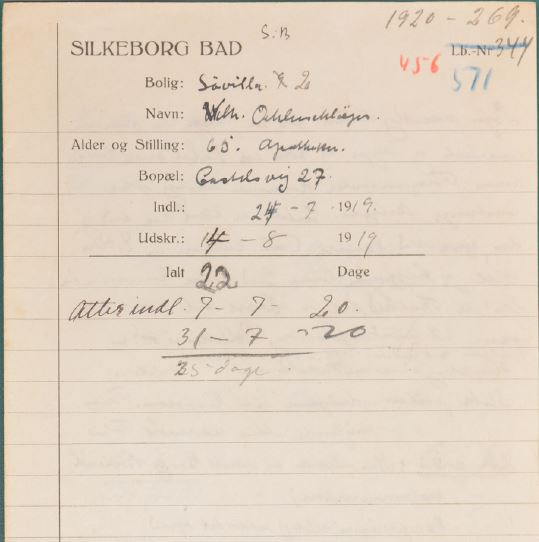 1920 - 269.
S.B
SILKEBORG BAD
Lb.-Nr 344
456
571
Bolig: Søvilla 2
Navn: Vilh. Oehlenschläger.
Alder og Stilling: 65. Apotheker.
Bopæl: 27.
Indl.: 24 - 7 - 1919.
Udskr.: 14 - 8 1919
Ialt 22 Dage
Atter indl. 7 - 7 - 20.
31 - 7 - 20
25 dage.